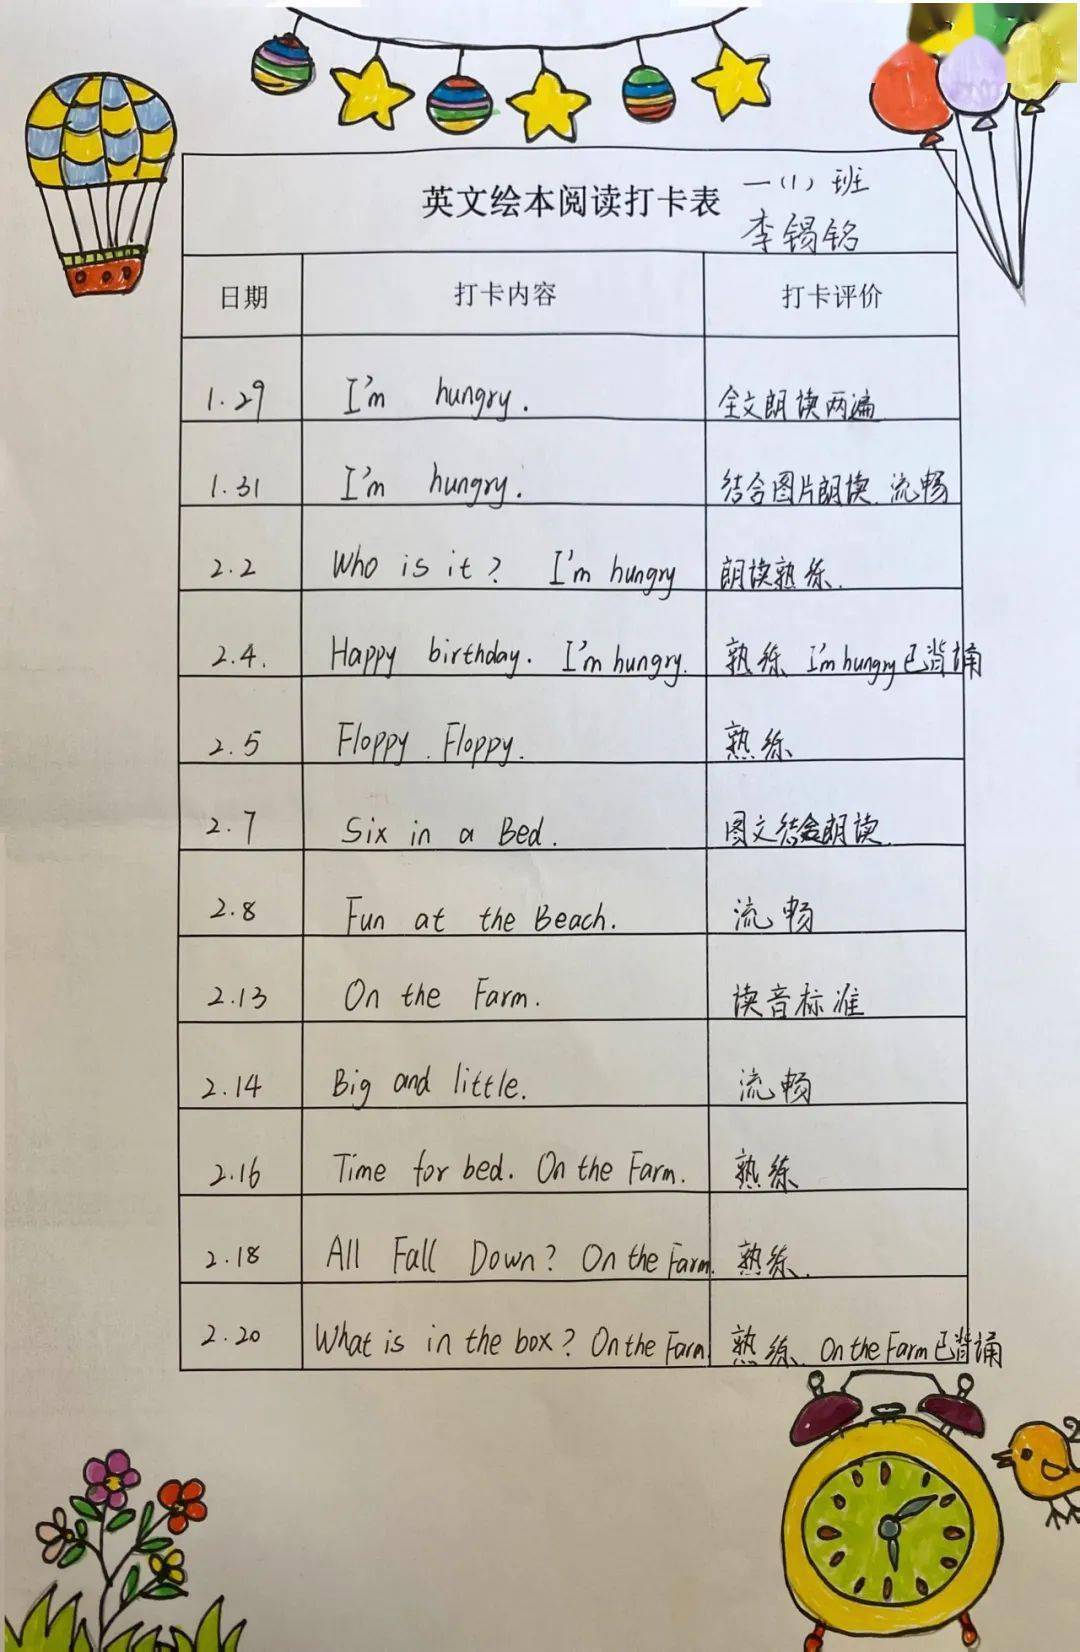 英文绘本阅读打卡表 一(1)班
李锡铭
日期 打卡内容 打卡评价
1.29 I'm hungry. 全文朗读两遍
1.31 I'm hungry. 结合图片朗读.流畅
2.2 Who is it? I'm hungry 朗读熟练.
2.4. Happy birthday. I'm hungry. 熟练 I'm hungry已背诵
2.5 Floppy.Floppy. 熟练
2.7 Six in a Bed. 图文结合朗读.
2.8 Fun at the Beach. 流畅
2.13 On the Farm. 读音标准
2.14 Big and little. 流畅
2.16 Time for bed. On the Farm. 熟练
2.18 All Fall Down? On the Farm. 熟练.
2.20 What is in the box? On the Farm. 熟练. On the Farm已背诵